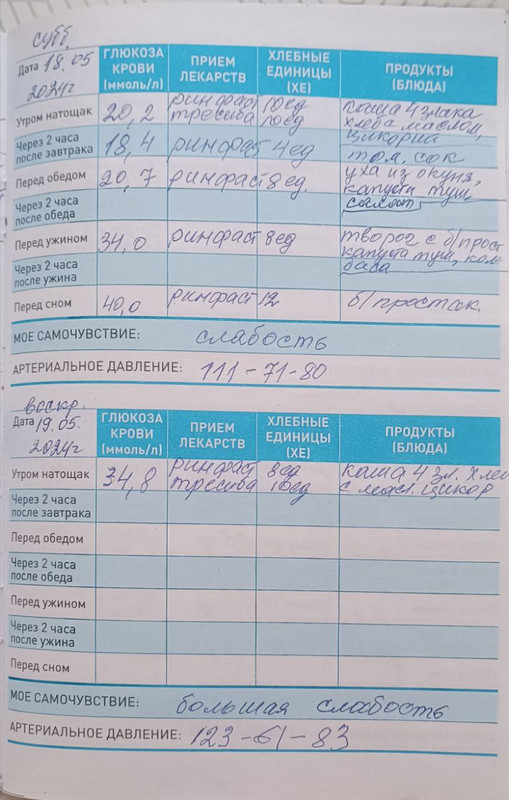 субб.
Дата 18.05
2024г
ГЛЮКОЗА КРОВИ (ммоль/л) ПРИЕМ ЛЕКАРСТВ ХЛЕБНЫЕ ЕДИНИЦЫ (ХЕ) ПРОДУКТЫ (БЛЮДА)
Утром натощак 20,2 ринфаст 10ед каша 4 злака
тресиба 10ед хлеб с маслом,
цикорий
Через 2 часа после завтрака 18,4 ринфаст 4 ед том. сок
Перед обедом 20,7 ринфаст 8 ед. уха из окуня,
капуста туш,
Через 2 часа после обеда салат
Перед ужином 34,0 ринфаст 8 ед творог с б/прост
капуста туш, кол-
Через 2 часа после ужина баса
Перед сном 40,0 ринфаст 12 б/простак.
МОЕ САМОЧУВСТВИЕ: слабость
АРТЕРИАЛЬНОЕ ДАВЛЕНИЕ: 111-71-80
воскр.
Дата 19.05.
2024г
ГЛЮКОЗА КРОВИ (ммоль/л) ПРИЕМ ЛЕКАРСТВ ХЛЕБНЫЕ ЕДИНИЦЫ (ХЕ) ПРОДУКТЫ (БЛЮДА)
Утром натощак 34,8 ринфаст 8 ед каша 4 зл. хлеб
тресиба 10ед с масл. цикор
Через 2 часа после завтрака
Перед обедом
Через 2 часа после обеда
Перед ужином
Через 2 часа после ужина
Перед сном
МОЕ САМОЧУВСТВИЕ: большая слабость
АРТЕРИАЛЬНОЕ ДАВЛЕНИЕ: 123-61-83